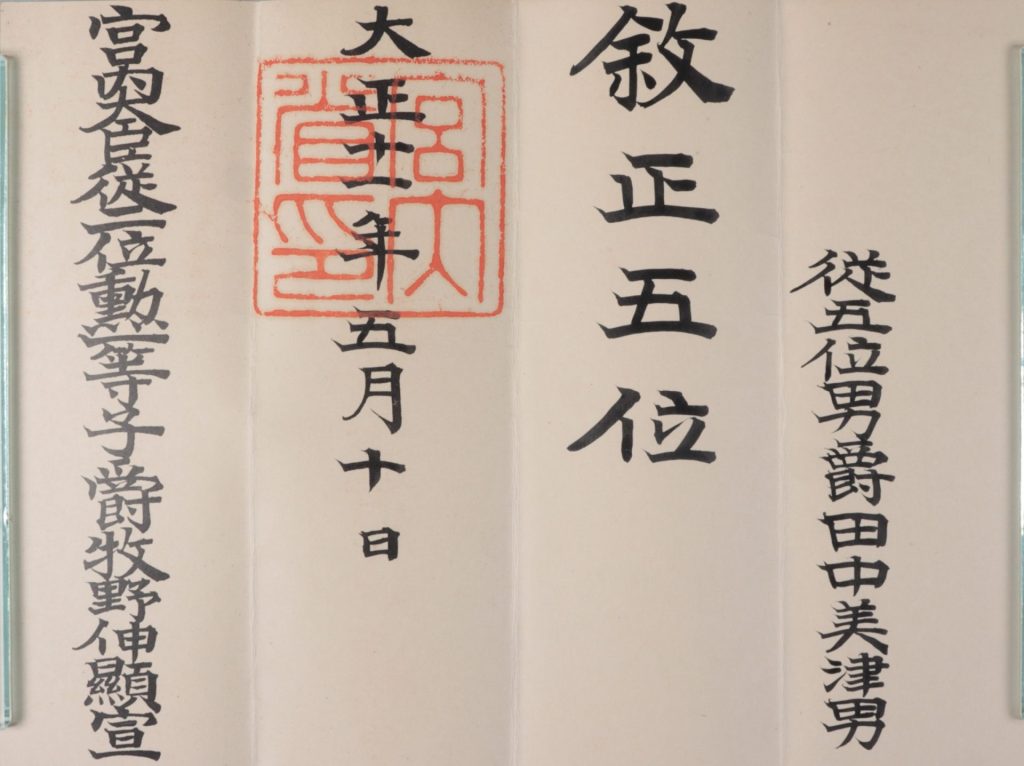 従五位男爵田中美津男
敘正五位
大正十一年五月十日
宮内省印
宮内大臣従二位勲一等子爵牧野伸顯宣